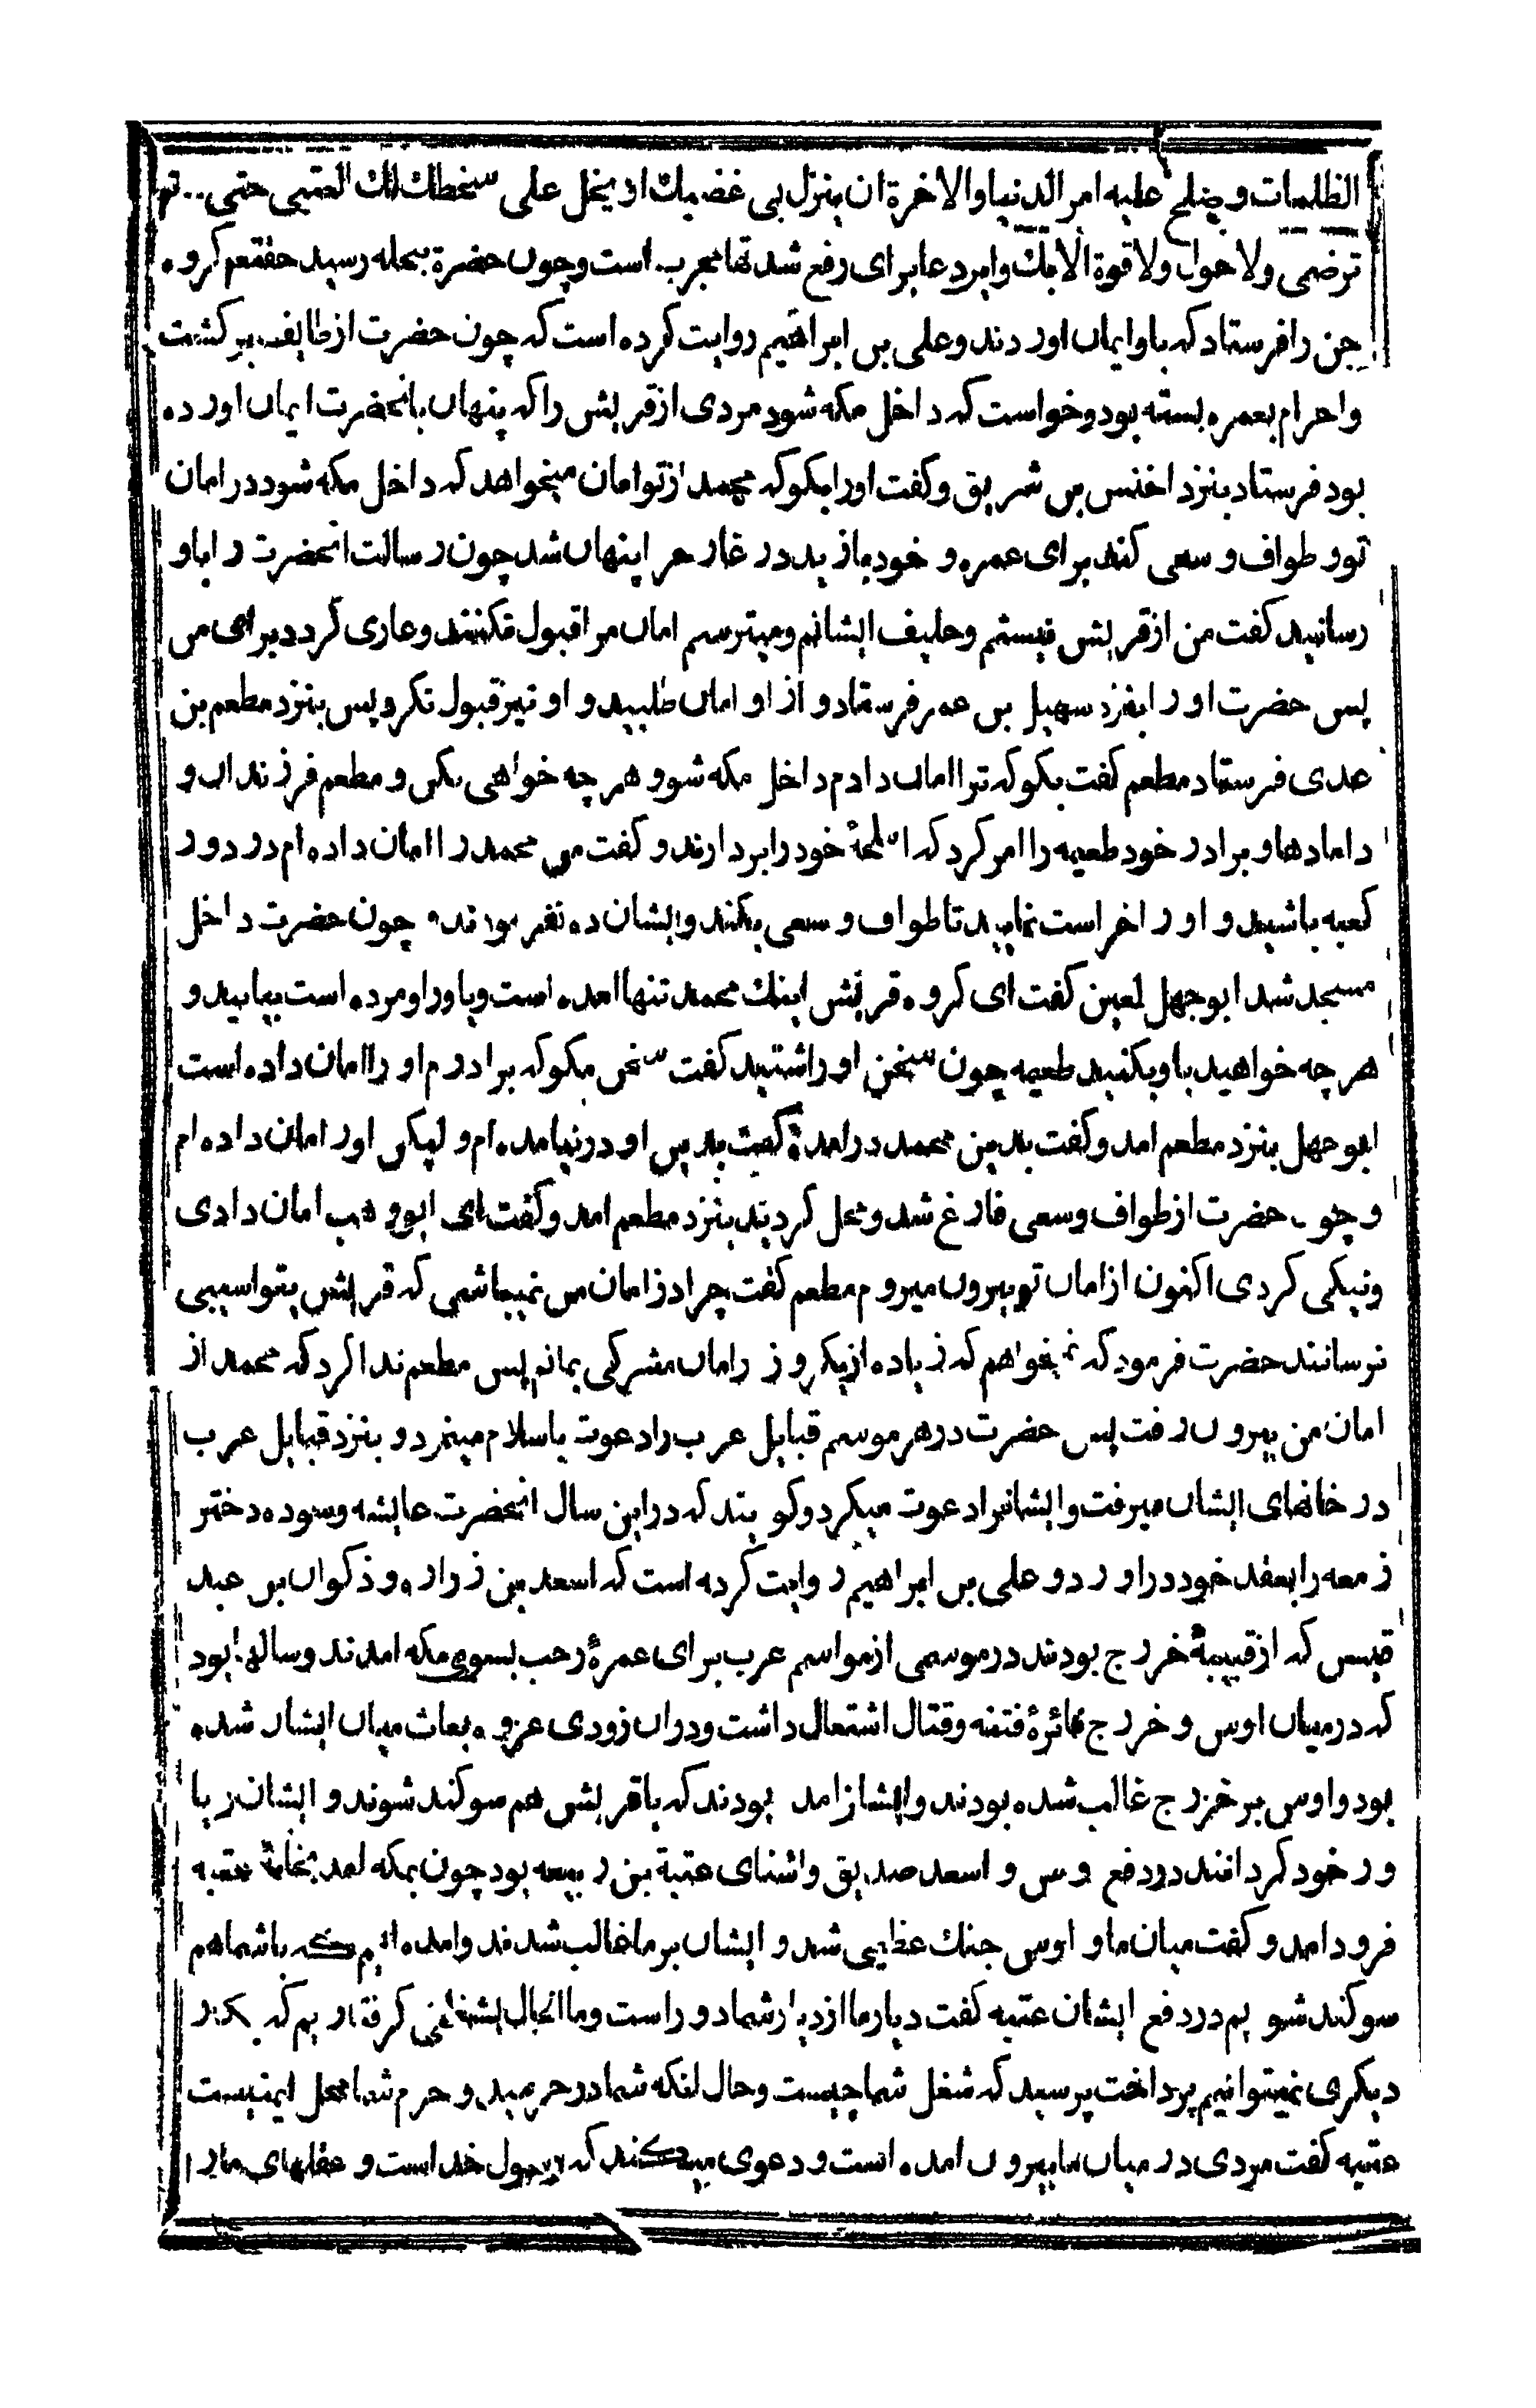 الظلمات و صلح علیه امر الدنیا والاخرة ان ینزل بی غضبك او یحل علی سخطك لك العتبی حتی
ترضی ولا حول ولا قوة الا بك واین دعا برای رفع شدتها مجرب است وچون حضرة بنخله رسید حقتعم کروه
جن را فرستاد که باو ایمان اوردند وعلی بن ابراهیم روایت کرده است که چون حضرت از طایف برکشت
واحرام بعمره بسته بود وخواست که داخل مکه شود مردی از قریش را که پنهان بانحضرت ایمان اورده
بود فرستاد بنزد اخنس بن شریق وکفت اورا بکو که محمد از تو امان میخواهد که داخل مکه شود در امان
تو و طواف و سعی کند برای عمره و خود باز ید در غار حرا پنهان شد چون رسالت انحضرت را باو
رسانید کفت من از قریش نیستم وحلیف ایشانم ومیترسم امان مرا قبول نکنند وعاری کردد برای من
پس حضرت اورا بنزد سهیل بن عمر فرستاد و از او امان طلبید و او نیز قبول نکرد پس بنزد مطعم بن
عدی فرستاد مطعم کفت بکو که ترا امان دادم داخل مکه شو و هر چه خواهی بکن و مطعم فرزندان و
دامادها و برادر خود طعیمه را امر کرد که اسلحهٔ خود را بردارند و کفت من محمد را امان داده ام در دور
کعبه باشید و اورا حراست نمایید تا طواف و سعی بکند وایشان ده نفر بودند چون حضرت داخل
مسجد شد ابوجهل لعین کفت ای کروه قریش اینك محمد تنها امده است ویاور او مرده است بیایید و
هر چه خواهید باو بکنید طعیمه چون سخن اورا شنید کفت سخن مکو که برادرم او را امان داده است
ابوجهل بنزد مطعم امد وکفت بدین محمد درامدهٔ کفت بدین او درنیامده ام و لیکن اورا امان داده ام
و چون حضرت از طواف وسعی فارغ شد و محل کردید بنزد مطعم امد وکفت ای ابو وهب امان دادی
ونیکی کردی اکنون از امان تو بیرون میروم مطعم کفت چرا در امان من نمیباشی که قریش بتو اسیبی
نرسانند حضرت فرمود که نمیخواهم که زیاده از یکروز در امان مشرکی بمانم پس مطعم ندا کرد که محمد از
امان من بیرون رفت پس حضرت در هر موسم قبایل عرب را دعوت باسلام مینمود و بنزد قبایل عرب
در خانهای ایشان میرفت وایشانرا دعوت میکرد وکویند که دراین سال انحضرت عایشه وسوده دختر
زمعه را بعقد خود دراورد و علی بن ابراهیم روایت کرده است که اسعد بن زراره و ذکوان بن عبد
قیس که از قبیلهٔ خزرج بودند در موسمی از مواسم عرب برای عمرهٔ رجب بسوی مکه امدند وسالها بود
که در میان اوس و خزرج نائرهٔ فتنه وقتال اشتعال داشت ودران زودی غزوه بعاث میان ایشان شده
بود واوس بر خزرج غالب شده بودند وایشان امد بودند که با قریش هم سوکند شوند و ایشان را یا
ور خود کردانند در دفع وس و اسعد صدیق واشنای عتبة بن ربیعه بود چون بمکه امد بخانهٔ عتبه
فرود امد و کفت میان ما و اوس جنك عظیمی شد و ایشان بر ما غالب شدند وامده ایم که باشما هم
سوکند شویم در دفع ایشان عتبه کفت دیار ما از دیار شما دور است وما الحال بشغلی کرفتاریم که بکار
دیکری نمیتوانیم پرداخت پرسید که شغل شما چیست وحال انکه شما در حرمید و حرم شما محل ایمنیست
عتبه کفت مردی در میان ما بیرون امده است و دعوی میکند که رسول خداست و عقلهای مارا